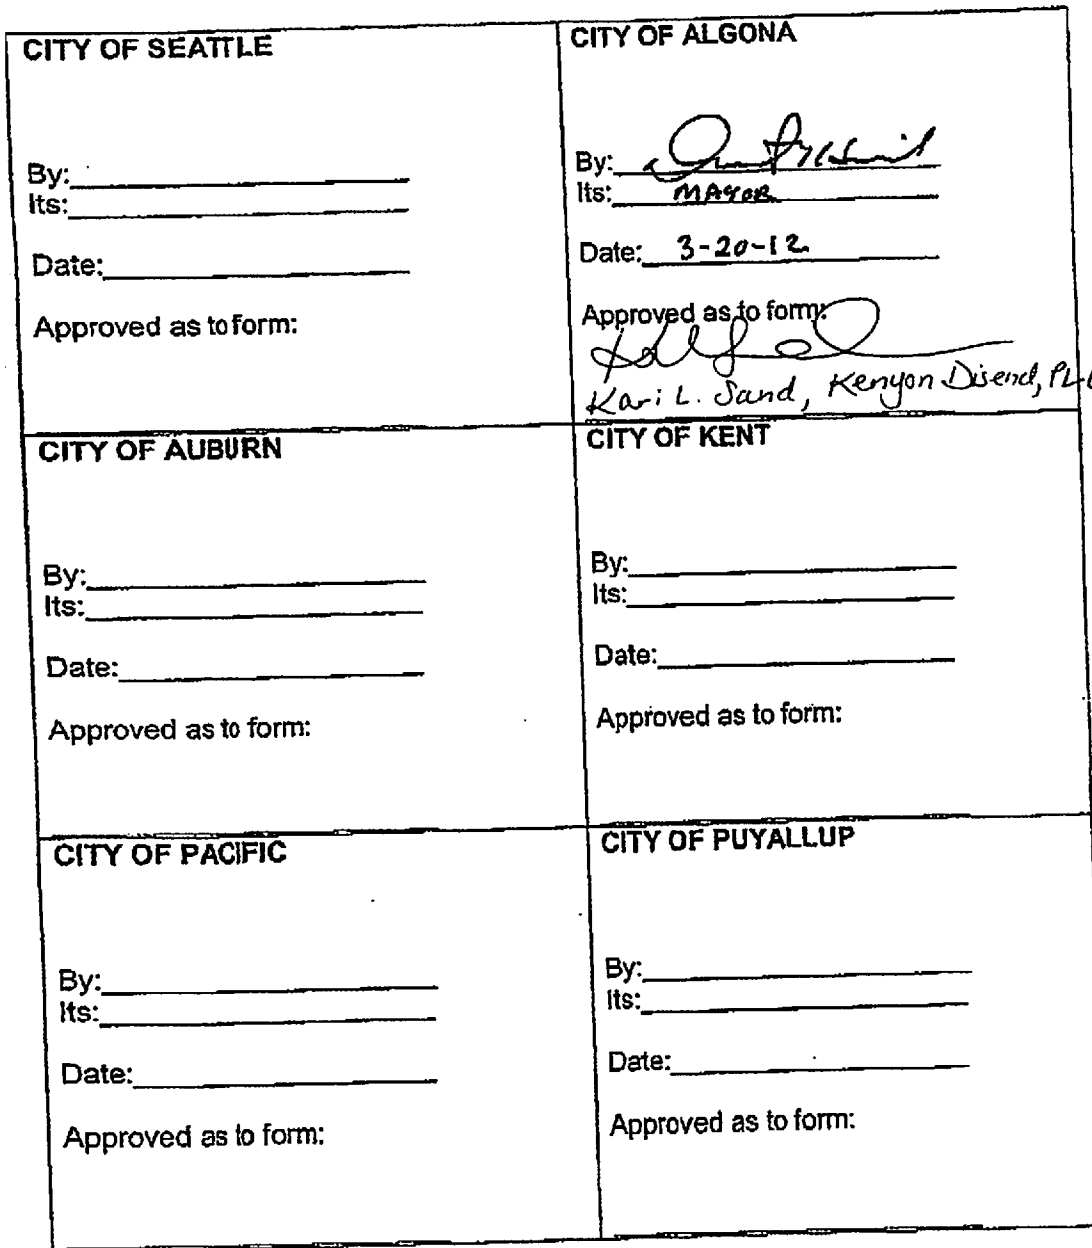 CITY OF SEATTLE
By:
Its:
Date:
Approved as to form:
CITY OF ALGONA
By:
Its: MAYOR
Date: 3-20-12
Approved as to form:
Kari L. Sand, Kenyon Disend, PLL
CITY OF AUBURN
By:
Its:
Date:
Approved as to form:
CITY OF KENT
By:
Its:
Date:
Approved as to form:
CITY OF PACIFIC
By:
Its:
Date:
Approved as to form:
CITY OF PUYALLUP
By:
Its:
Date:
Approved as to form: